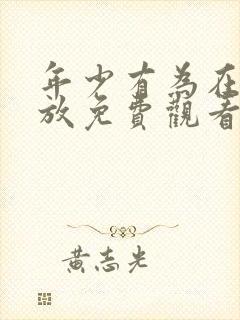 年少有為在
放免費觀看
黃志光